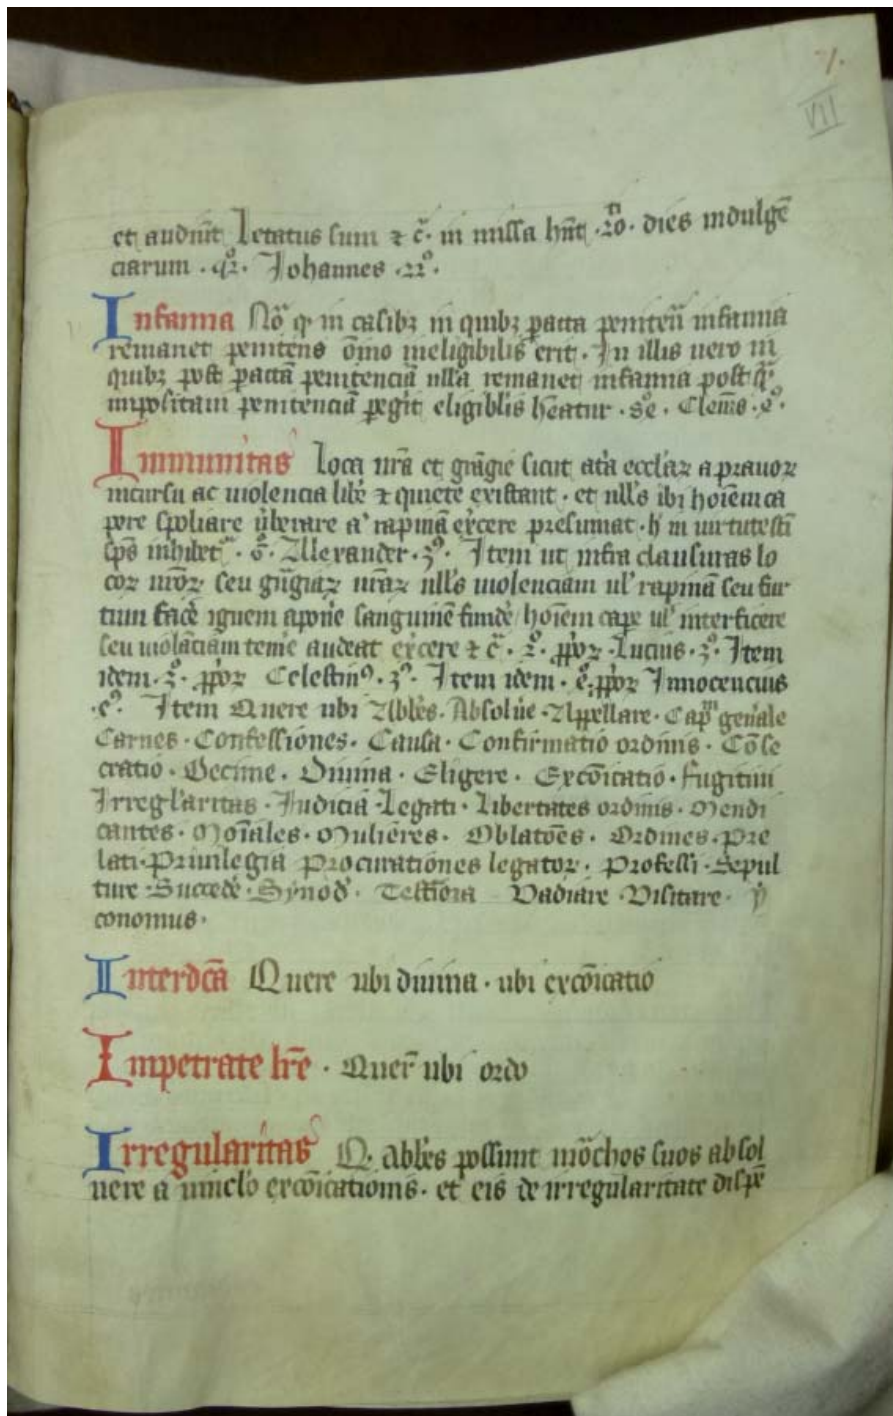 7.
VII
et audiūt Letatus sum ⁊ c̄. in missa hn̄t .xxͦ. dies indulgē
ciarum . Johannes .
Infamia Nō qͥ in casibꝫ in quibꝫ ꝑacta penitēn̄ infamia
remanet penitens ōīno ineligibilis erit. In illis uero in
quibꝫ post ꝑactā penitenciā nll̄a remanet infamia postq̄
impositam penitenciā ꝑegit eligiblis heatur . Clem̄s .
Immunitas Loca nr̄a et grāgie sicut atͥa ecclāꝝ a prauoꝝ
incursu ac uiolencia libē ⁊ quiete existant . et nll's ibi hoīem ca
pere spoliare ꝟberare aͭ rapinā ex̄cere presumat . h in uirtute sc̄i
sp̄s inhibet . Allexander . Item ut infra clausuras lo
coꝝ nr̄oꝝ seu grāgiaꝝ nr̄aꝝ nll's uiolenciam ul' rapinā seu fur
tum facē ignem aponē sanguinē fundē hoīem capē ul' interficere
seu uiolāciam temē audeat ex̄cere ⁊ c̄ . Lucius . Item
idem . Celestinꝰ . Item idem . Innocencius
Item Quere ubi Abb'es . Absolue . Appellare . Cap generale
Carnes . Confessiones . Causa . Confirmatio ordinis . Cōse
cratio . Decime . Diuina . Eligere . Excōicatio . Fugitiui
Irregl'aritas . Judicia . Legati . Libertates ordinis . Mendi
cantes . Moīales . Mulieres . Oblatōes . Ordines . Pre
lati . Priuilegia Procurationes legatoꝝ . Professi . Sepul
ture . Succedē . Synod' . Testīonia Vadiare . Visitare . y
conomus .
Interdcā Quere ubi diuina . ubi excōicatio
Impetrate lr̄e . Quer̄ ubi ordo
Irregularitas Q. Abb'es possunt mōchos suos absol
uere a uinclo excōicationis . et eis de irregularitate dispē